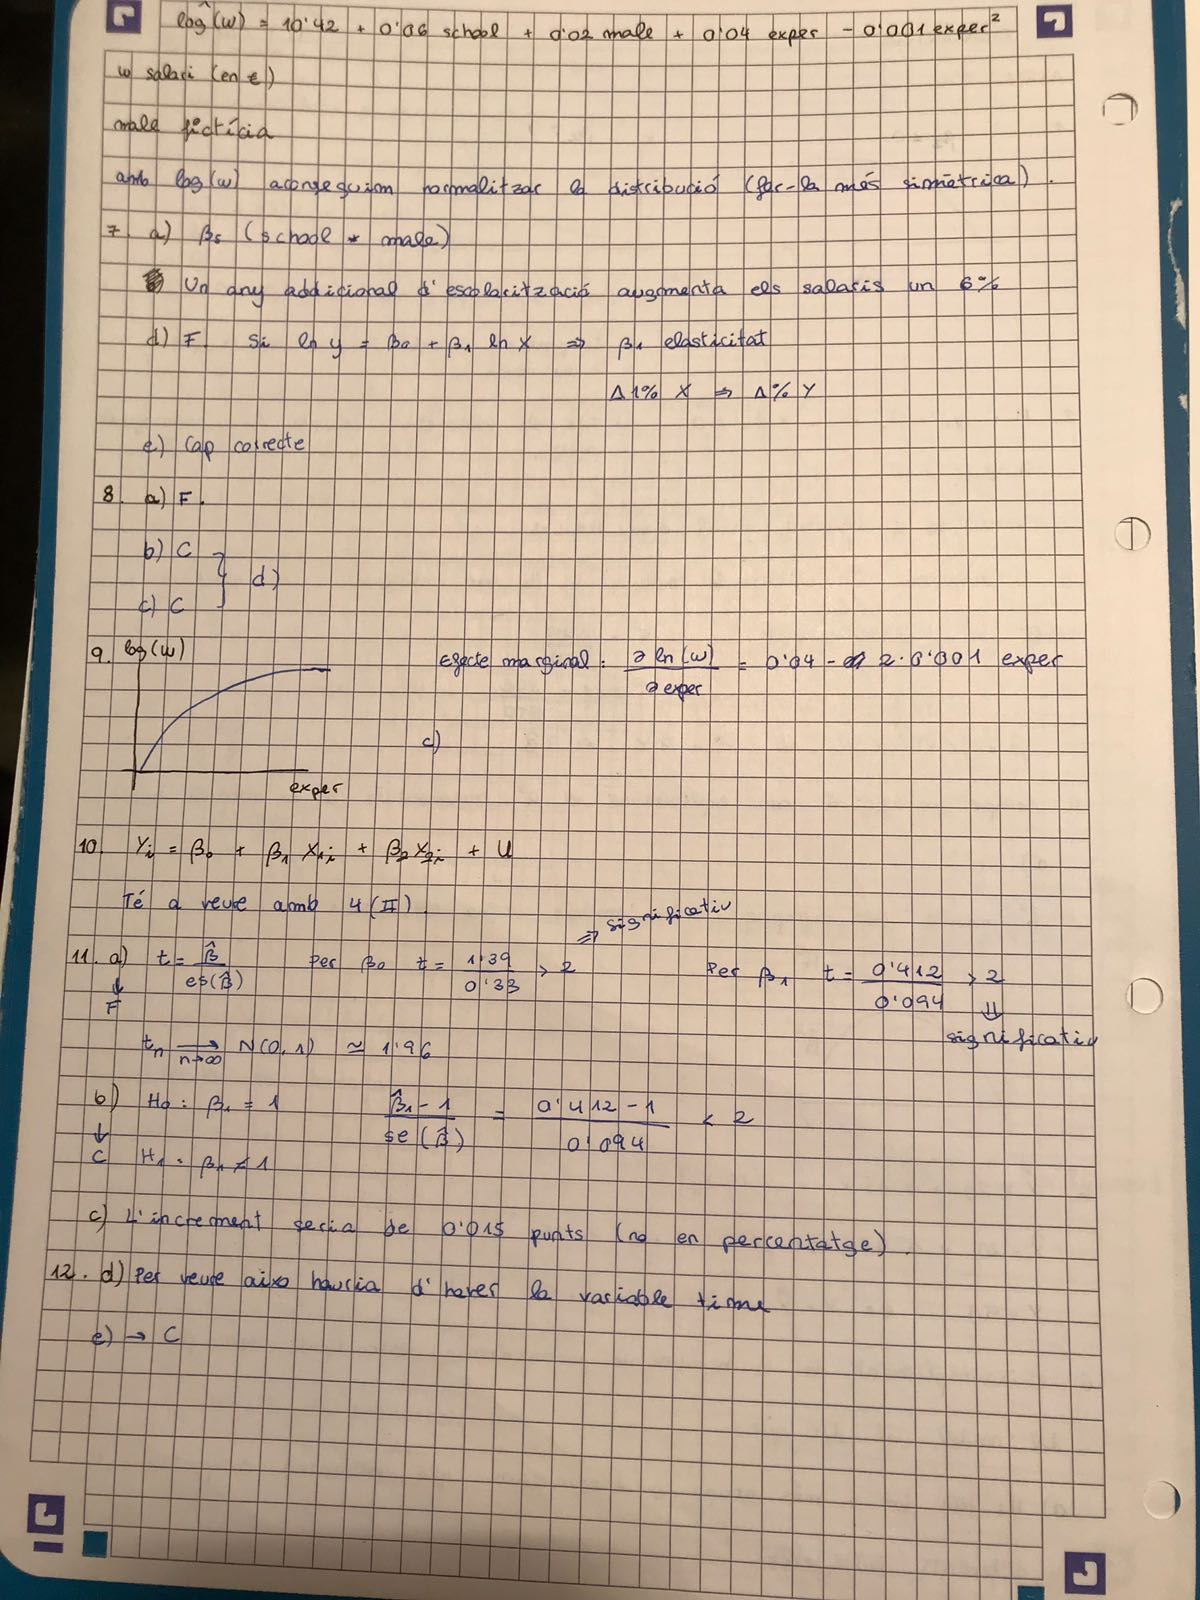 log^(w) = 10'42 + 0'06 school + 0'02 male + 0'04 exper - 0'001 exper²
w salari (en €)
male fictícia
amb log(w) aconseguim normalitzar la distribució (fer-la més simètrica).
7. a) β5 (school * male)
Un any addicional d'escolarització augmenta els salaris un 6%
d) F Si ln y = β0 + β1 ln X ⇒ β1 elasticitat
Δ1% X ⇒ Δ% Y
e) Cap correcte
8. a) F.
b) C
d)
c) C
9. log(w)
Efecte marginal: ∂ ln(w) / ∂ exper = 0'04 - 2·0'001 exper
c)
exper
10. Yi = β0 + β1 X1i + β2 X2i + U
Té a veure amb 4(II).
11. a) t = β̂ / es(β̂) Per β0 t = 1'39 / 0'33 > 2 ⇒ significatiu Per β1 t = 0'412 / 0'094 > 2
↓ ⇓
F significatiu
tn → n→∞ N(0,1) ≃ 1'96
b) H0: β1 = 1 β̂1 - 1 / se(β̂) = 0'412 - 1 / 0'094 < 2
↓
C H1: β1 ≠ 1
c) L'increment seria de 0'015 punts (no en percentatge).
12. d) Per veure aixo hauria d'haver la variable time
e) → C